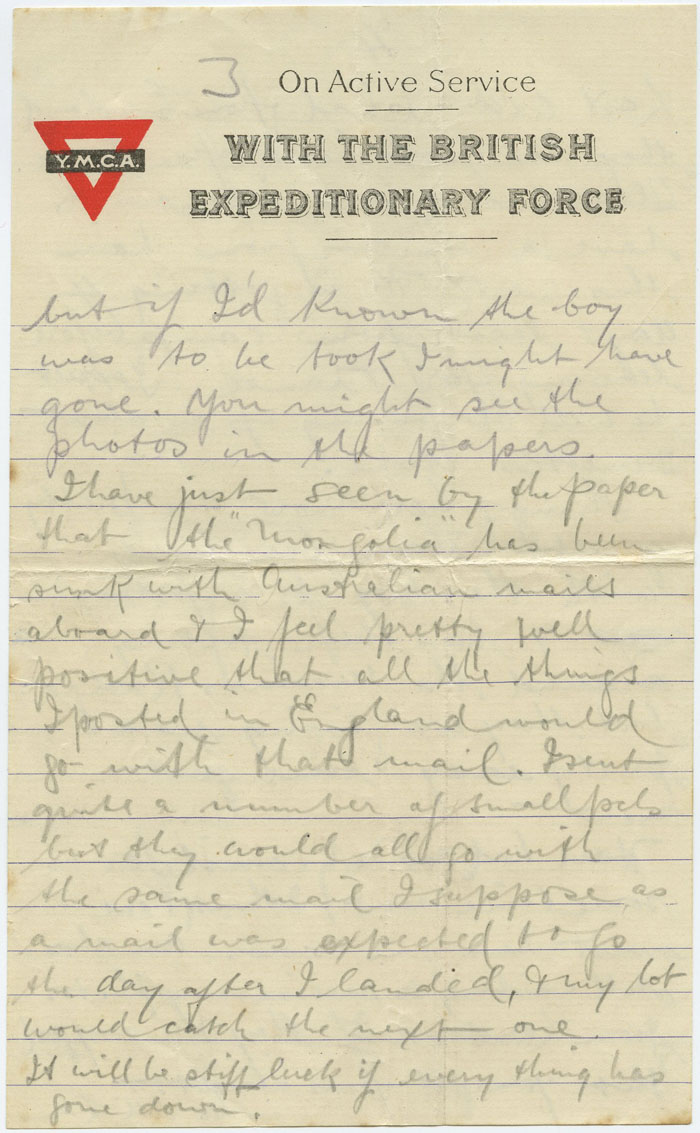 3
On Active Service
Y.M.C.A.
WITH THE BRITISH
EXPEDITIONARY FORCE
but if I'd known the boy
was to be took I might have
gone. You might see the
photos in the papers.
I have just seen by the paper
that the "Mongolia" has been
sunk with Australian mails
aboard & I feel pretty well
positive that all the things
I posted in England would
go with that mail. I sent
quite a number of small pcls
but they would all go with
the same mail I suppose as
a mail was expected to go
the day after I landed, & my lot
would catch the next one.
It will be stiff luck if every thing has
gone down.